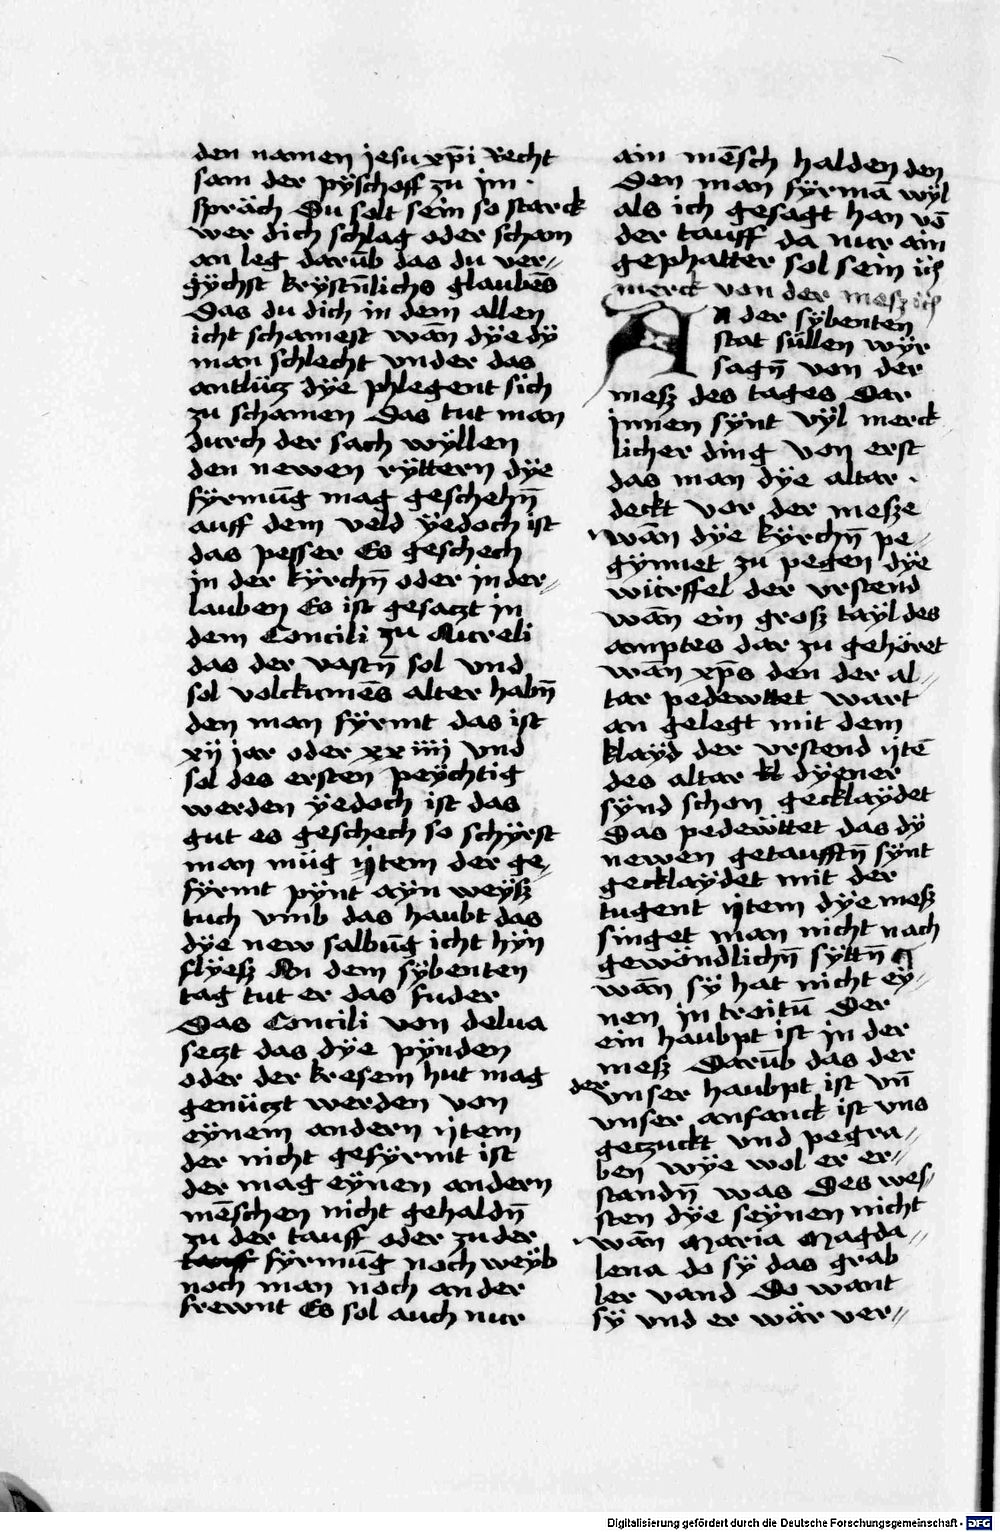 den namen jesu xp̄i Recht
sam der pÿschoff zu jm ·
spräch Du solt sein so starck
wer dich schlag oder scham
an leg darūb das du ver⸗
gÿchst krÿstn̄lichs glaubēs
Das du dich in dem allen
icht schamest wān dÿe dÿ
man schlecht vnder das
antlücz dÿe phlegent sich
zu schamen Das tut man
durch der sach wÿllen
den newen rÿttern dÿe
fÿrmūg mag geschehn̄
auff dem veld ÿedoch ist
das pesser Es geschech
in der kÿrchn̄ oder in der⸗
lauben Es ist gesaczt in
dem Concili zu Aureli
das der vastn̄ sol vnd
sol volckumēs alter habn̄
den man fÿrmt das ist
xij jar oder xx iiij vnd
sol des ersten peÿchtig
werden ÿedoch ist das
gut es geschech so schÿrst
man müg ijtem der ge⸗
fÿrmt pÿnt aÿn weÿsz
tuch vmb das haubt das
dÿe new salbūg icht hÿn
flÿesz An dem sÿbenten
tag tut er das fuder
Das Concili von delua
seczt das dÿe pÿnden
oder der kresem hut mag
genüczt werden von
eÿnem andern ijtem
der nicht gefÿrmt ist
der mag eÿnen andern
mēschen nicht gehaldn̄
zu der tauff oder zu der
tauff fÿrmūg noch weÿb
noch man noch an der
frewnt Es sol auch nur
ain mēsch halden den
Den man fÿrmā wÿl
als ich gesagt han vō
der tauff da nur ain
gephatter sol sein
merck von der mesz
An der sÿbenten
stat süllen wÿr
sagn̄ von der
mesz des tages Dar
jnnen sÿnt vÿl merck
licher ding von erst
das man dÿe altar ·
deckt vor der mesze
wān dÿe kÿrchn̄ pe⸗
gÿnnet zu pegen dÿe
würffel der vrstend
wān ein grosz taÿl des
amptes dar zu gehöret
wān xp̄s den der al⸗
tar pedewttet wart
an gelegt mit dem
klaÿd der vrstend ijtē
des altar kl dÿener
sÿnd schon gecklaÿdet
Das pedewttet das dÿ
newen getaufftn̄ sÿnt
gecklaÿdet mit der
tugent ijtem dÿe mesz
singet man nicht nach
gewöndlichn̄ sÿttn̄
wān sÿ hat nicht eÿ⸗
nen in troitū Der
ein haubpt ist in der
mesz Darūb das der
der vnser haubpt ist vn̄
vnser anfanck ist vns
geczuckt vnd pegra⸗
ben wÿe wol er er⸗
standn̄ was Des wes⸗
sten dÿe seÿnen nicht
wān Maria Magda⸗
lena do sÿ das grab
ler vand Do want
sÿ vnd er wär ver⸗
Digitalisierung gefördert durch die Deutsche Forschungsgemeinschaft - DFG